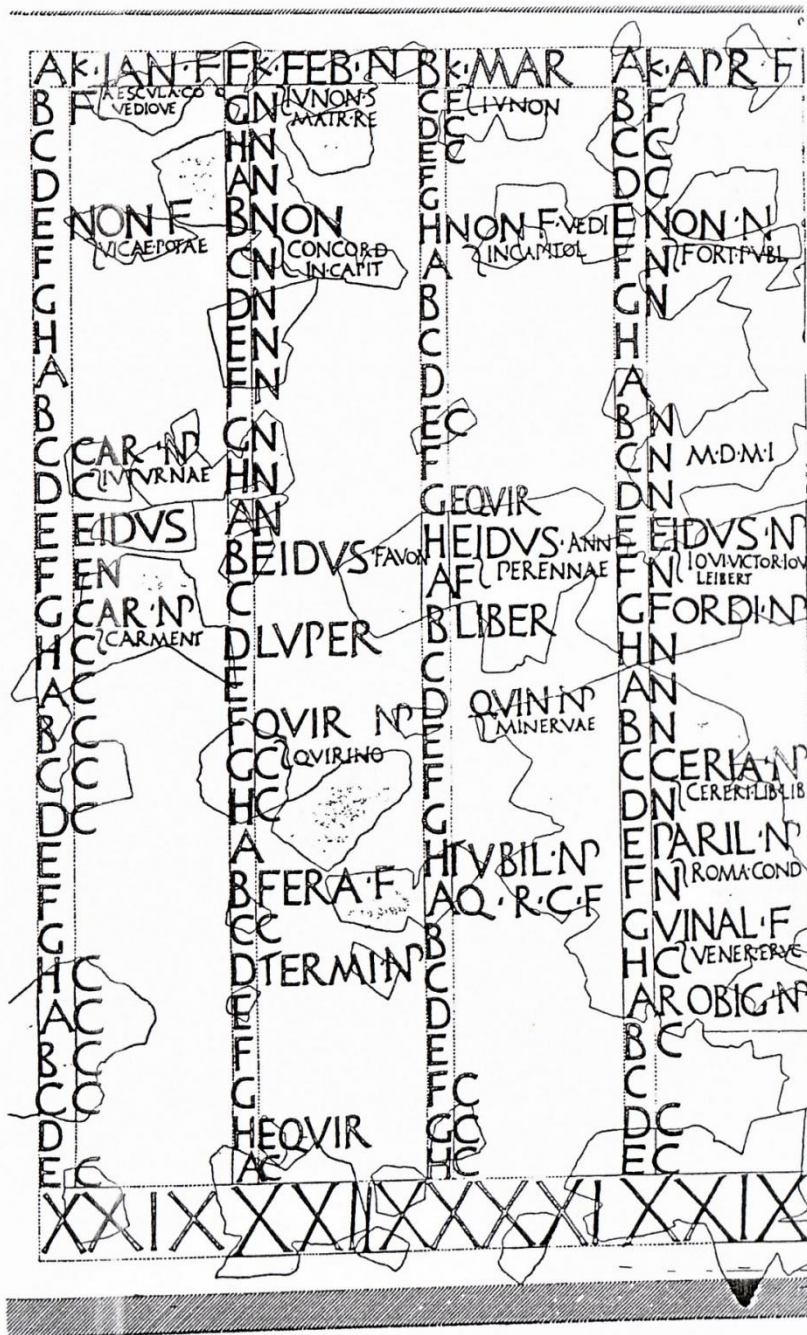 A K·IAN·F
B F AESCVLA·CO·
VEDIOVE
C
D
E NON F
VICAE·POTAE
F
G
H
A
B
C CAR·NP
IVTVRNAE
D C
E EIDVS
F EN
G CAR·NP
CARMENT
H C
A C
B C
C C
D C
E
F
G
H C
A C
B C
C C
D
E C
XXIX
F K·FEB·N
G N IVNON·S
MATR·RE
H N
A N
B NON
CONCORD
C N IN·CAPIT
D N
E N
F N
G N
H N
A N
B EIDVS·FAVON
C
D LVPER
E
F QVIR NP
QVIRINO
G C
H C
A
B FERA·F
C C
D TERMI NP
E
F
G
H EQVIR
A C
XXIIX
B K·MAR
C F IVNON
D C
E C
F
G
H NON F·VEDI
INCAPITOL
A
B
C
D
E C
F
G EQVIR
H EIDVS·ANN
PERENNAE
A F
B LIBER
C
D QVIN NP
MINERVAE
E
F
G
H TVBIL·NP
A Q·R·C·F
B
C
D
E
F C
G C
H C
XXXXI
A K·APR F
B F
C C
D C
E NON·N
FORT·PVBL
F N
G N
H
A
B N
C N M·D·M·I
D N
E EIDVS·NP
IOVI·VICTOR·IOV
F N LEIBERT
G FORDI·NP
H N
A N
B N
C CERIA·NP
CERERI·LIB·LIB
D N
E PARIL·NP
F N ROMA·COND
G VINAL·F
VENER·ERVC
H C
A ROBIG·NP
B C
C
D C
E C
XXIX